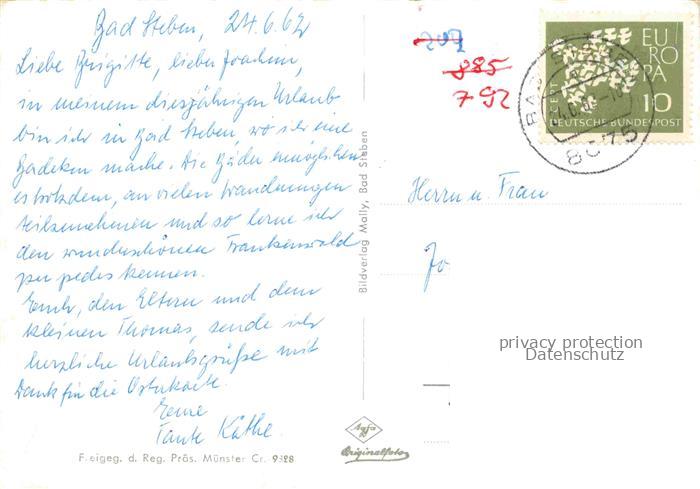 Bad Steben, 24.6.62
Liebe Brigitte, lieber Joachim,
in meinem diesjährigen Urlaub
bin ich in Bad Steben wo ich eine
Badekur mache. Die Bäder ermöglichen
es trotzdem, an vielen Wanderungen
teilzunehmen und so lerne ich
den wunderschönen Frankenwald
per pedes kennen.
Euch, den Eltern und dem
kleinen Thomas, sende ich
herzliche Urlaubsgrüße mit
Dank für die Osterkarte.
Eure
Tante Käthe.
Freigeg. d. Reg. Präs. Münster Cr. 9328
Bildverlag Mally, Bad Steben
Agfa
Originalfoto
207
885
792
EU
RO
PA
CEPT
10
DEUTSCHE BUNDESPOST
BAD STEBEN
8675
Herrn u. Frau
Jo
privacy protection
Datenschutz